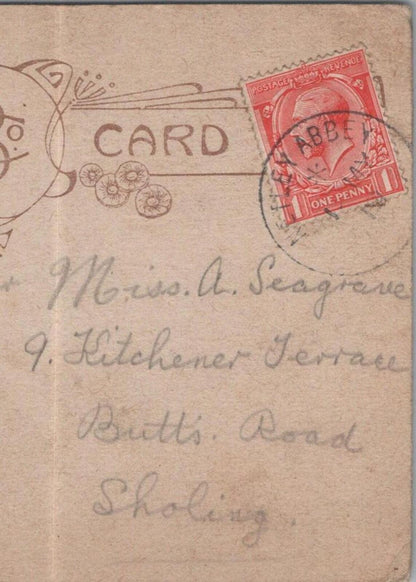 CARD
POSTAGE REVENUE
1 ONE PENNY 1
NETLEY ABBEY
Miss. A. Seagrave
9. Kitchener Terrace
Butts. Road
Sholing.